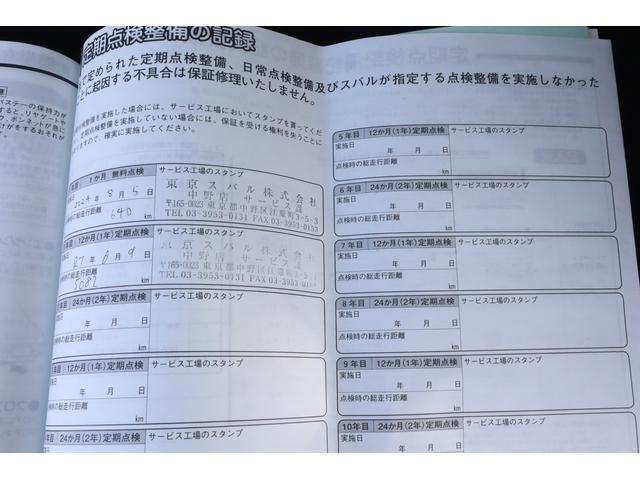 定期点検整備の記録
で定められた定期点検整備、日常点検整備及びスバルが指定する点検整備を実施しなかった
に起因する不具合は保証修理いたしません。
を実施した場合には、サービス工場においてスタンプを貰ってく
定期点検整備を実施していない場合には、保証を受ける権利を失うことに
ますので、確実に実施してください。
1か月 無料点検 サービス工場のスタンプ
2024年8月5日
走行距離 640 km
東京スバル株式会社
中野店 サービス課
〒165-0023 東京都中野区江原町3-5-3
TEL 03-3953-0131 FAX 03-3953-0157
年目 12か月(1年)定期点検 サービス工場のスタンプ
R7年8月9日
走行距離 5082 km
東京スバル株式会社
中野店 サービス課
〒165-0023 東京都中野区江原町3-5-3
TEL 03-3953-0131 FAX 03-3953-0157
24か月(2年)定期点検 サービス工場のスタンプ
年 月 日
時の総走行距離
km
年目 12か月(1年)定期点検 サービス工場のスタンプ
年 月 日
総走行距離
km
年目 24か月(2年)定期点検 サービス工場のスタンプ
年 月 日
5年目 12か月(1年)定期点検 サービス工場のスタンプ
実施日
年 月 日
点検時の総走行距離
km
6年目 24か月(2年)定期点検 サービス工場のスタンプ
実施日
年 月 日
点検時の総走行距離
km
7年目 12か月(1年)定期点検 サービス工場のスタンプ
実施日
年 月 日
点検時の総走行距離
km
8年目 24か月(2年)定期点検 サービス工場のスタンプ
実施日
年 月 日
点検時の総走行距離
km
9年目 12か月(1年)定期点検 サービス工場のスタンプ
実施日
年 月 日
点検時の総走行距離
km
10年目 24か月(2年)定期点検 サービス工場のスタンプ
実施日
年 月 日